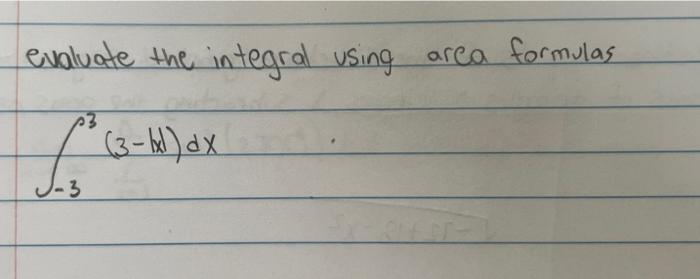 evaluate the integral using area formulas
∫_{-3}^{3} (3-|x|) dx